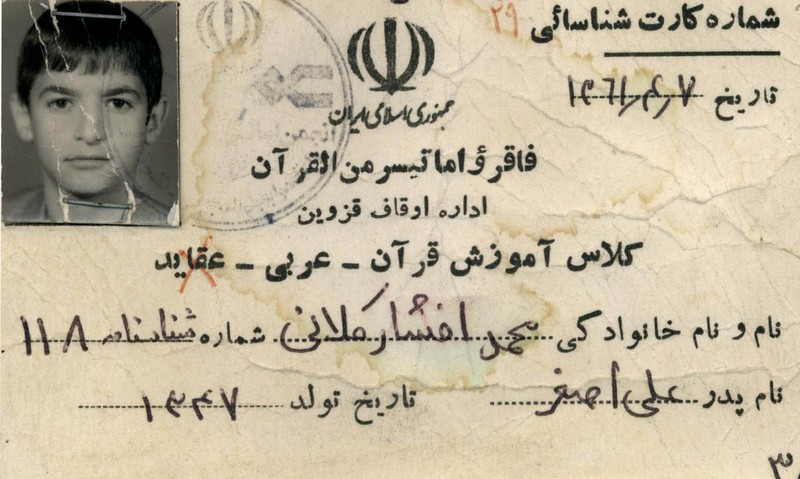 شماره کارت شناسائی ۲۹
تاریخ ۱۳۶۱/۴/۷
جمهوری اسلامی ایران
فاقرؤا ماتیسر من القرآن
اداره اوقاف قزوین
کلاس آموزش قرآن - عربی - عقاید
نام و نام خانوادگی محمد افشار کلانی شماره شناسنامه ۱۱۸
نام پدر علی اصغر تاریخ تولد ۱۳۴۷